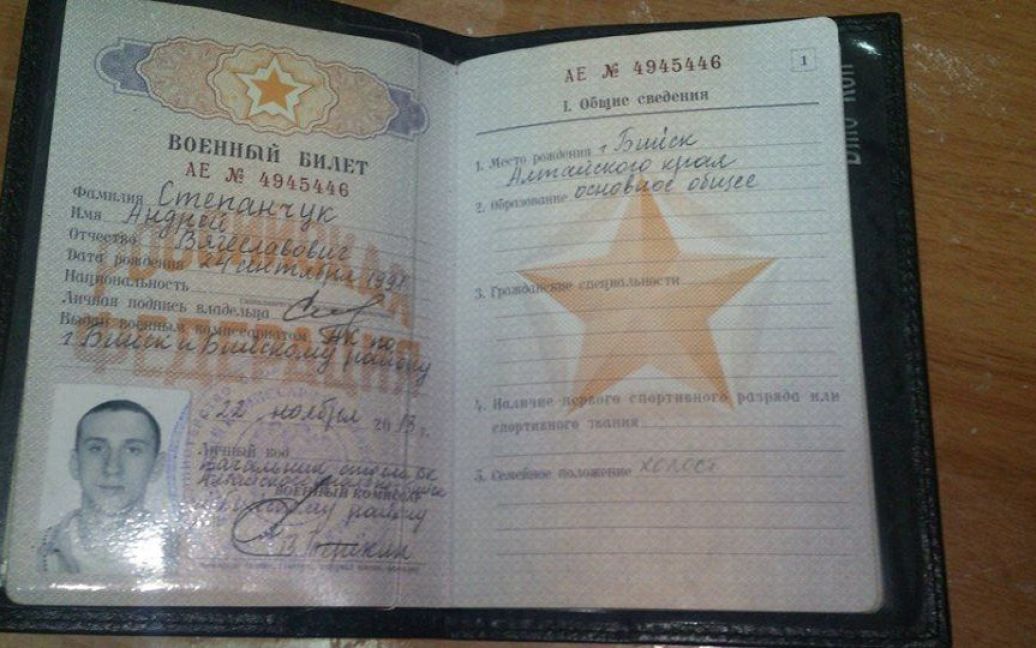 ВОЕННЫЙ БИЛЕТ
АЕ № 4945446
Фамилия Степанчук
Имя Андрей
Отчество Вячеславович
Дата рождения 24 сентября
Национальность
Личная подпись владельца
Выдан военным комиссариатом ВК по
г. Бийск и Бийскому району
22 ноября 2013 г.
Личный код
Начальник отдела ВК
военный комиссар
району
АЕ № 4945446
1
I. Общие сведения
1. Место рождения г. Бийск
Алтайского края
2. Образование основное общее
3. Гражданские специальности
4. Наличие первого спортивного разряда или
спортивного звания
5. Семейное положение холост